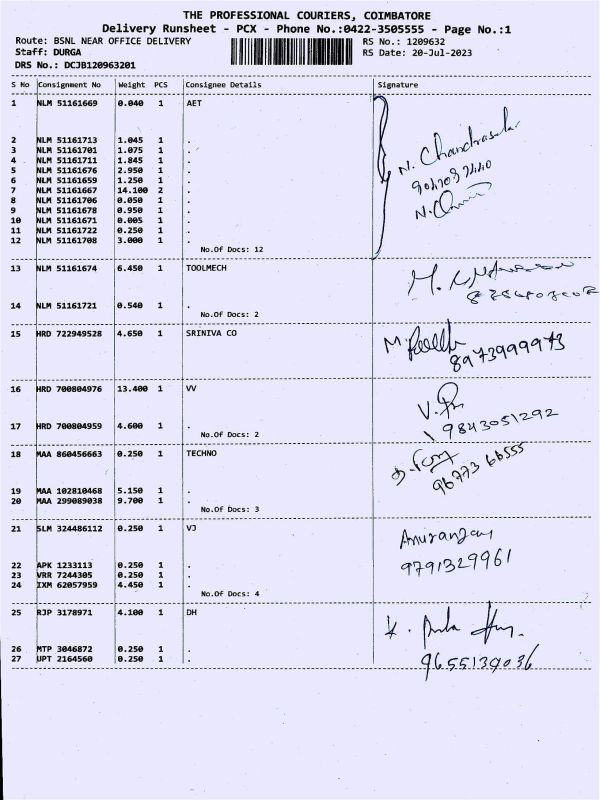 THE PROFESSIONAL COURIERS, COIMBATORE
Delivery Runsheet - PCX - Phone No.:0422-3505555 - Page No.:1
Route: BSNL NEAR OFFICE DELIVERY RS No.: 1209632
Staff: DURGA RS Date: 20-Jul-2023
DRS No.: DCJB120963201
S No Consignment No Weight PCS Consignee Details Signature
1 NLM 51161669 0.040 1 AET
N. Chandrasekar
2 NLM 51161713 1.045 1 .
3 NLM 51161701 1.075 1 .
4 NLM 51161711 1.845 1 .
5 NLM 51161676 2.950 1 .
6 NLM 51161659 1.250 1 .
7 NLM 51161667 14.100 2 .
8 NLM 51161706 0.050 1 .
9 NLM 51161678 0.950 1 .
10 NLM 51161671 0.005 1 .
11 NLM 51161722 0.250 1 .
12 NLM 51161708 3.000 1 .
No.Of Docs: 12
13 NLM 51161674 6.450 1 TOOLMECH
14 NLM 51161721 0.540 1 .
No.Of Docs: 2
15 HRD 722949528 4.650 1 SRINIVA CO
8973999973
16 HRD 700804976 13.400 1 VV
9843051292
17 HRD 700804959 4.600 1 .
No.Of Docs: 2
18 MAA 860456663 0.250 1 TECHNO
96773 66555
19 MAA 102810468 5.150 1 .
20 MAA 299089038 9.700 1 .
No.Of Docs: 3
21 SLM 324486112 0.250 1 VJ
9791329961
22 APK 1233113 0.250 1 .
23 VRR 7244305 0.250 1 .
24 IXM 62057959 4.450 1 .
No.Of Docs: 4
25 RJP 3178971 4.100 1 DH
26 MTP 3046872 0.250 1 .
27 UPT 2164560 0.250 1 .
9655139036